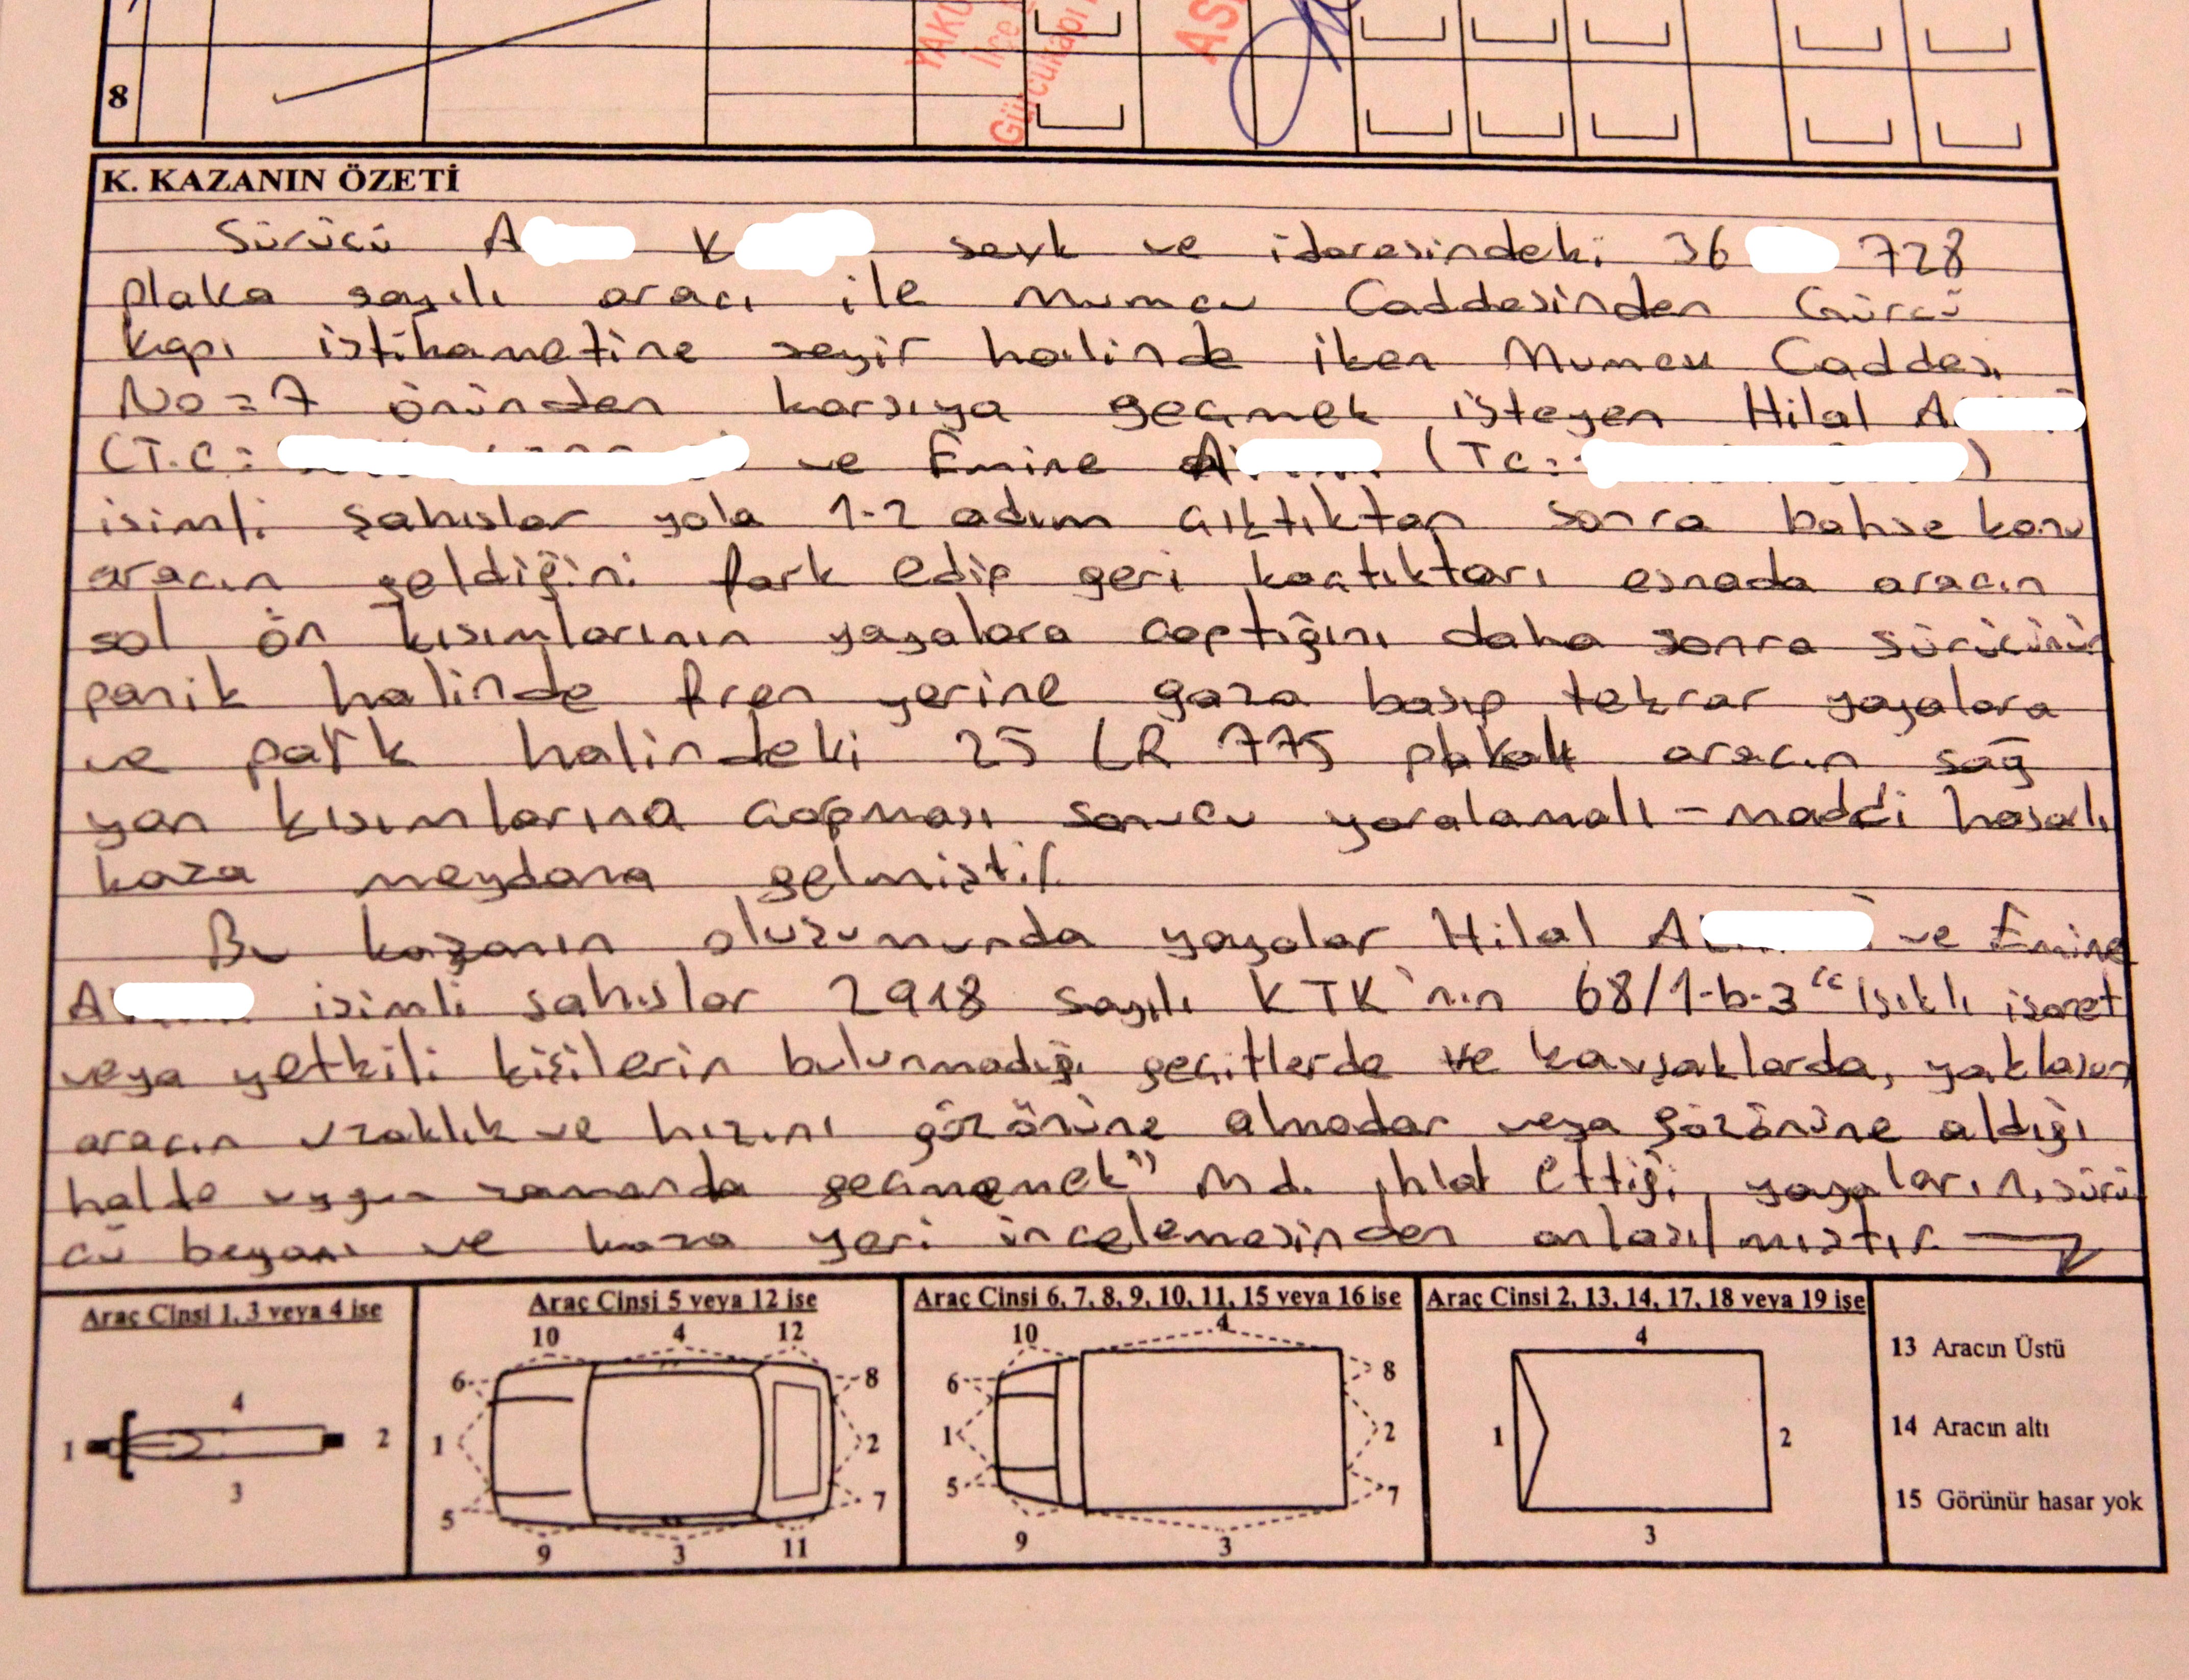 8
YAKU
İlçe
Gürcükapı
AS
K. KAZANIN ÖZETİ
Sürücü A K sevk ve idaresindeki 36 728
plaka sayılı aracı ile Mumcu Caddesinden Gürcü
Kapı istihametine seyir halinde iken Mumcu Caddesi
No=7 önünden karşıya geçmek isteyen Hilal A
(T.C: ve Emine A (Tc: )
isimli şahıslar yola 1-2 adım çıktıktan sonra bahse konu
aracın geldiğini fark edip geri kaçtıkları esnada aracın
sol ön kısımlarının yayalara çaptığını daha sonra sürücünün
panik halinde fren yerine gaza basıp tekrar yayalara
ve park halindeki 25 LR 775 plakalı aracın sağ
yan kısımlarına çapması sonucu yaralamalı - maddi hasarlı
kaza meydana gelmiştir.
Bu kazanın oluşumunda yayalar Hilal A ve Emine
A isimli şahıslar 2918 sayılı KTK'nın 68/1-b-3 "Işıklı işaret
veya yetkili kişilerin bulunmadığı geçitlerde ve kavşaklarda, yaklaşan
aracın uzaklık ve hızını gözönüne almadan veya gözönüne aldığı
halde uygun zamanda geçmemek" Md. ihlal ettiği, yayaların, sürü
cü beyanı ve kaza yeri incelemesinden anlaşılmıştır. →
Araç Cinsi 1, 3 veya 4 ise
Araç Cinsi 5 veya 12 ise
Araç Cinsi 6, 7, 8, 9, 10, 11, 15 veya 16 ise
Araç Cinsi 2, 13, 14, 17, 18 veya 19 ise
4
1 2
3
10 4 12
6 8
1 2
5 7
9 3 11
10 4
6 8
1 2
5 7
9 3
4
1 2
3
13 Aracın Üstü
14 Aracın altı
15 Görünür hasar yok